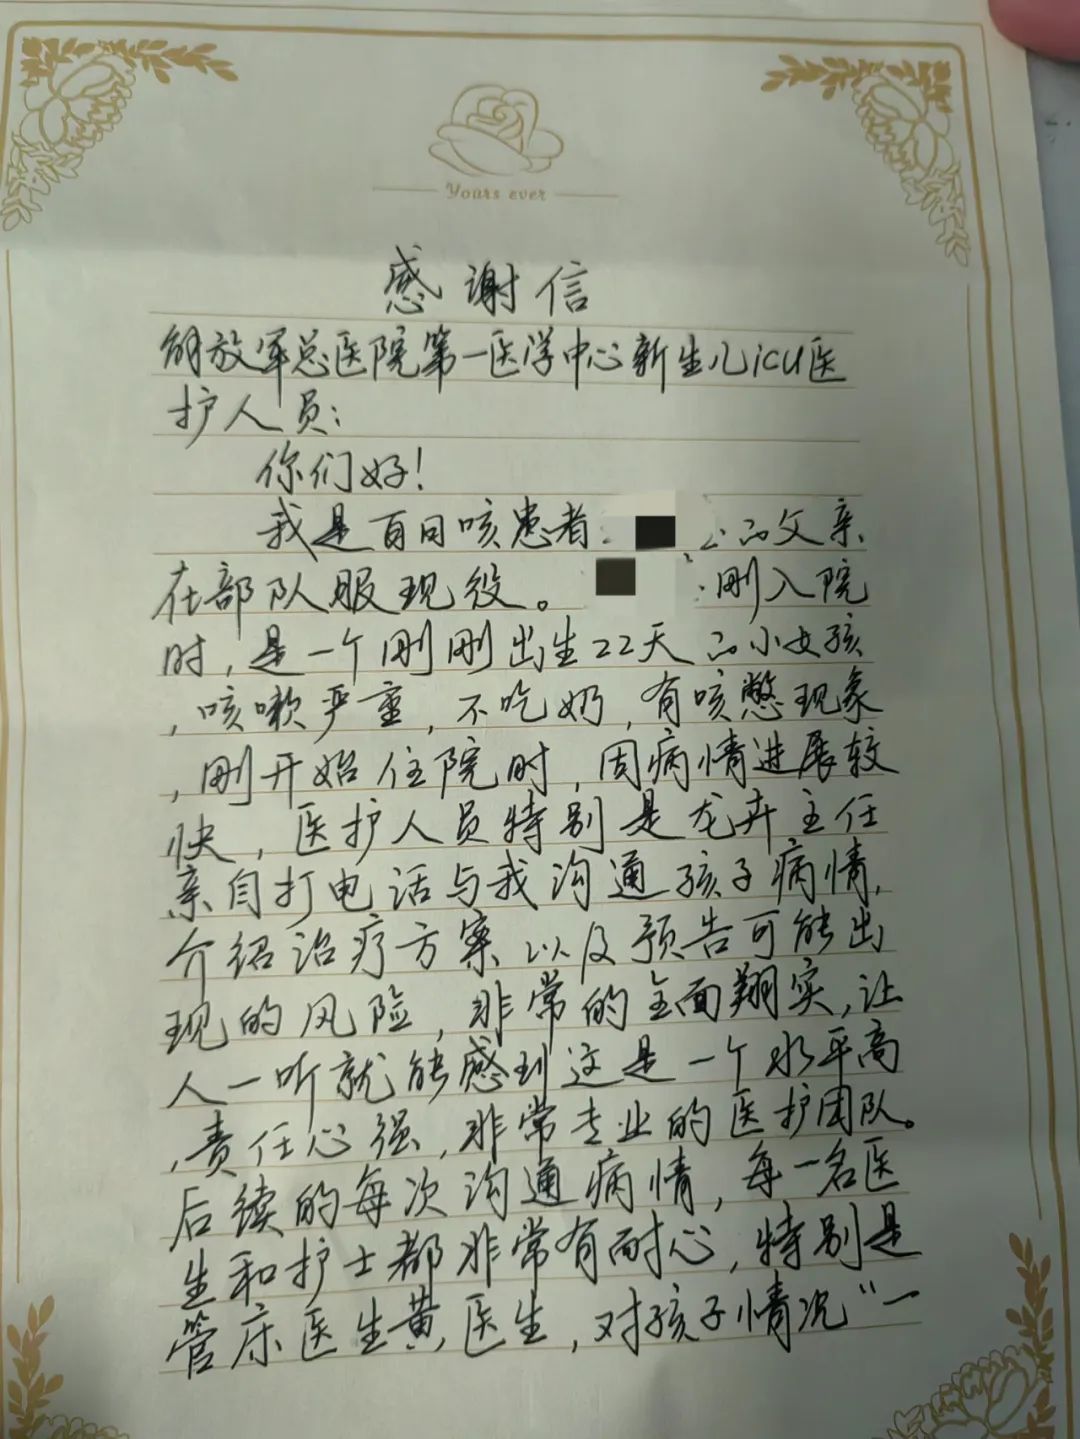 Yours ever
感谢信
解放军总医院第一医学中心新生儿icu医
护人员:
你们好!
我是百日咳患者 的父亲
在部队服现役。 刚入院
时,是一个刚刚出生22天的小女孩
,咳嗽严重,不吃奶,有咳憋现象
,刚开始住院时,因病情进展较
快,医护人员特别是龙卉主任
亲自打电话与我沟通孩子病情,
介绍治疗方案以及预告可能出
现的风险,非常的全面翔实,让
人一听就能感到这是一个水平高
,责任心强,非常专业的医护团队。
后续的每次沟通病情,每一名医
生和护士都非常有耐心,特别是
管床医生黄医生,对孩子情况“一